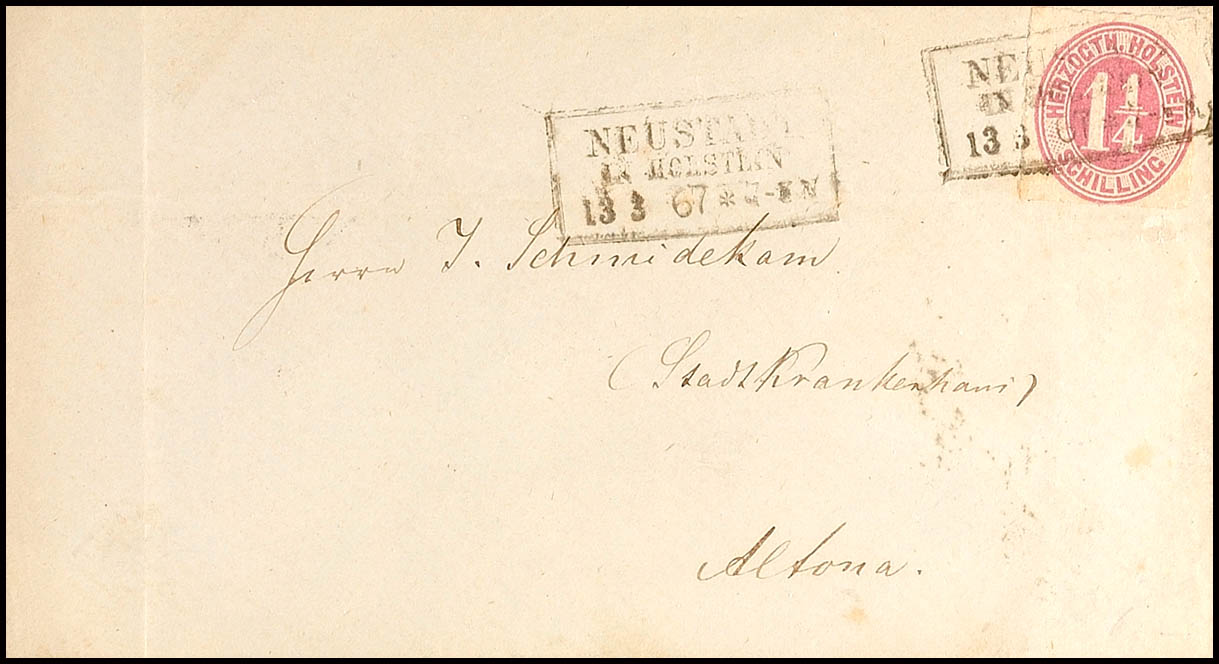 NEUSTADT
IN HOLSTEIN
13 3 67 * 7-8 N
NEU
IN
13 3
HERZOGTH. HOLSTEIN
1 1/4
SCHILLING
Herrn J. Schmidekam
(Stadtkrankenhaus)
Altona.